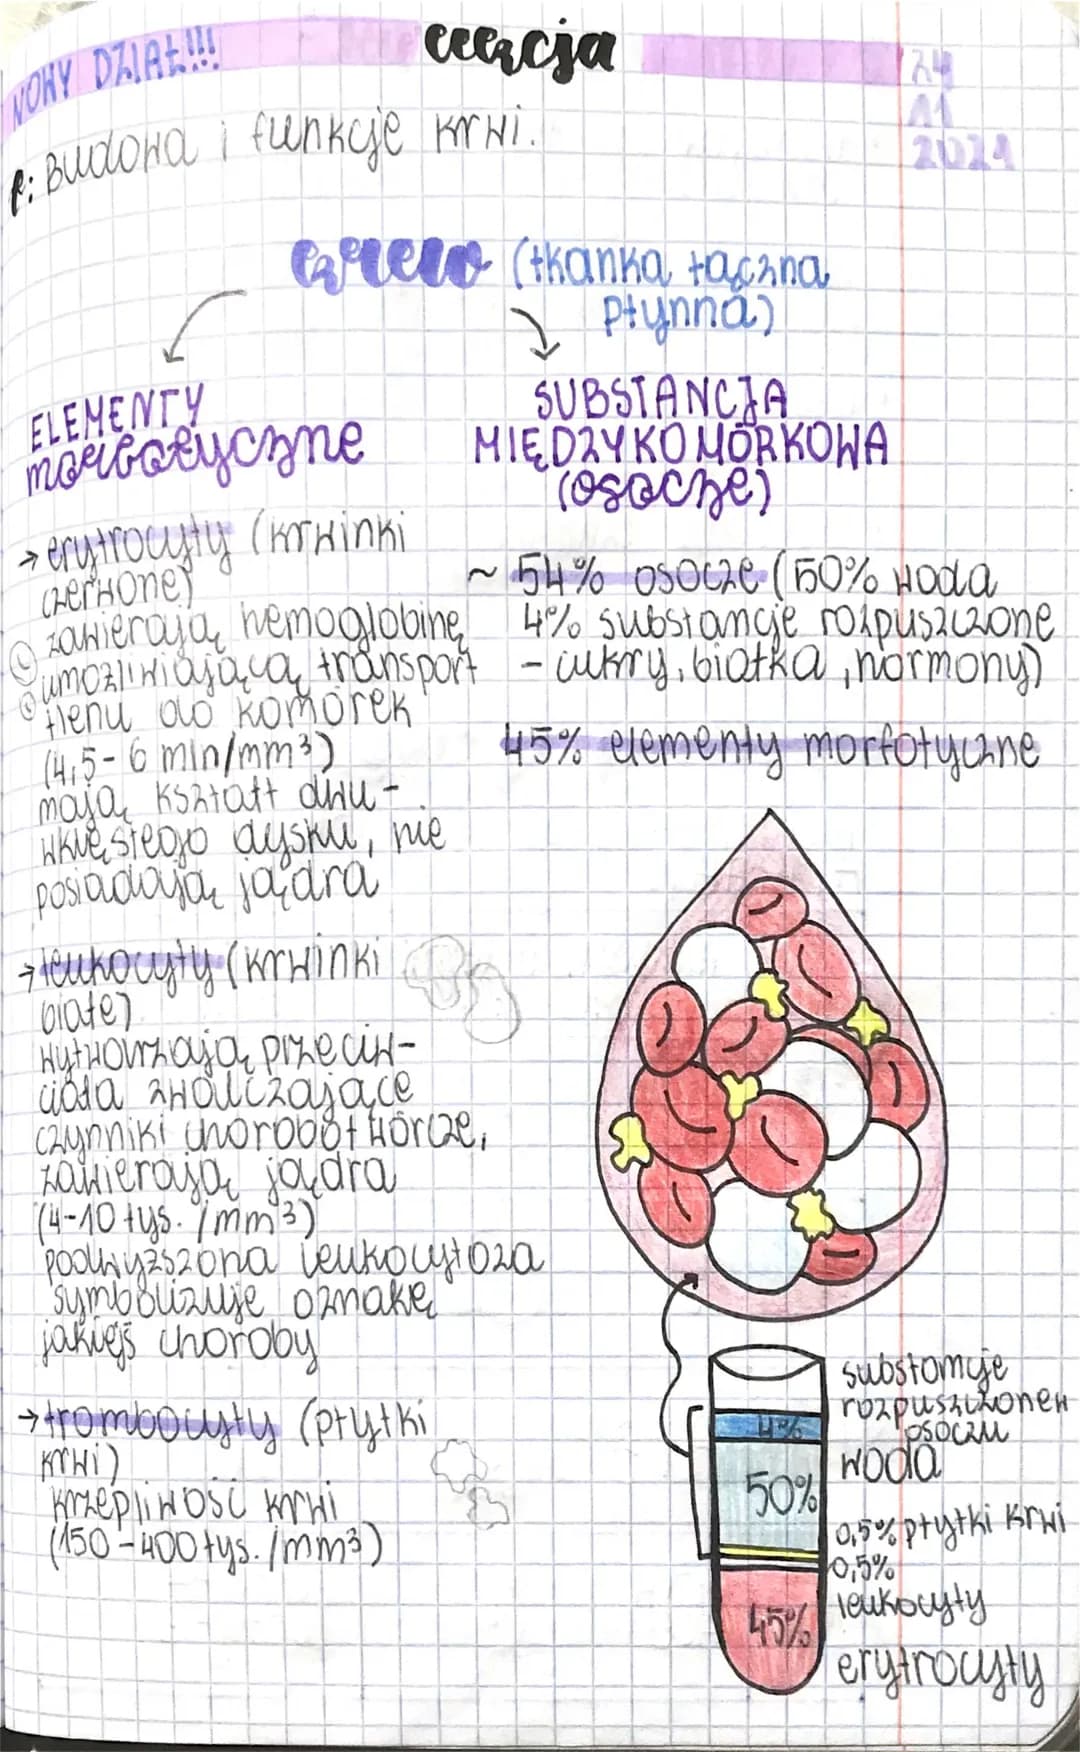 NOWY DZIAŁ!!!
lekcja
24
11
2021
T: Budowa i funkcje krwi.
krew (tkanka łączna
płynna)
ELEMENTY
morfotyczne
SUBSTANCJA
MIĘDZYKOMÓRKOWA
(osocze)
→ erytrocyty (krwinki
czerwone)
zawierają hemoglobinę
umożliwiającą transport
tlenu do komórek
(4,5 - 6 mln/mm³)
mają kształt dwu-
wklęsłego dysku, nie
posiadają jądra
→ leukocyty (krwinki
białe)
wytwarzają przeciw-
ciała zwalczające
czynniki chorobotwórcze,
zawierają jądra
(4-10 tys. /mm³)
podwyższona leukocytoza
symbolizuje oznakę
jakiejś choroby
→ trombocyty (płytki
krwi)
krzepliwość krwi
(150 - 400 tys. /mm³)
~ 54% osocze (50% woda
4% substancje rozpuszczone
- cukry, białka, hormony)
45% elementy morfotyczne
4%
50%
45%
substancje
rozpuszczone w
osoczu
woda
0,5% płytki krwi
0,5%
leukocyty
erytrocyty